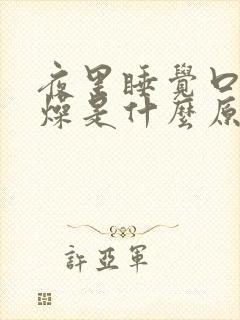 夜里睡覺口
燥是什麼原
許亞軍